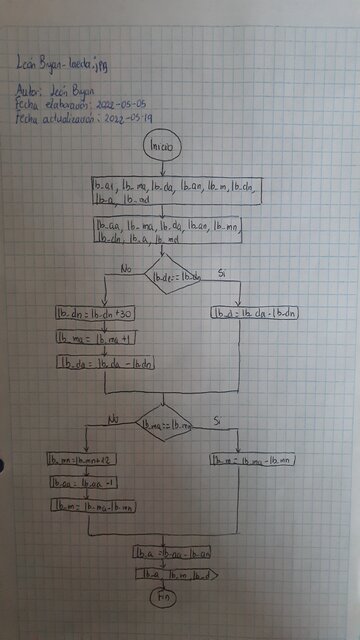 León Bryan-laeda.jpg
Autor: León Bryan
Fecha elaboración: 2022-05-05
Fecha actualización: 2022-05-19
Inicio
lb_aa, lb_ma, lb_da, lb_an, lb_m, lb_dn,
lb_a, lb_md
lb_aa, lb_ma, lb_da, lb_an, lb_mn,
lb_dn, lb_a, lb_md
No
lb_da==lb_dn
Si
lb_dn=lb_dn+30
lb_d=lb_da-lb_dn
lb_ma=lb_ma+1
lb_da=lb_da-lb_dn
No
lb_ma==lb_mn
Si
lb_mn=lb_mn+12
lb_m=lb_ma-lb_mn
lb_aa=lb_aa-1
lb_m=lb_ma-lb_mn
lb_a=lb_aa-lb_an
lb_a, lb_m, lb_d
Fin